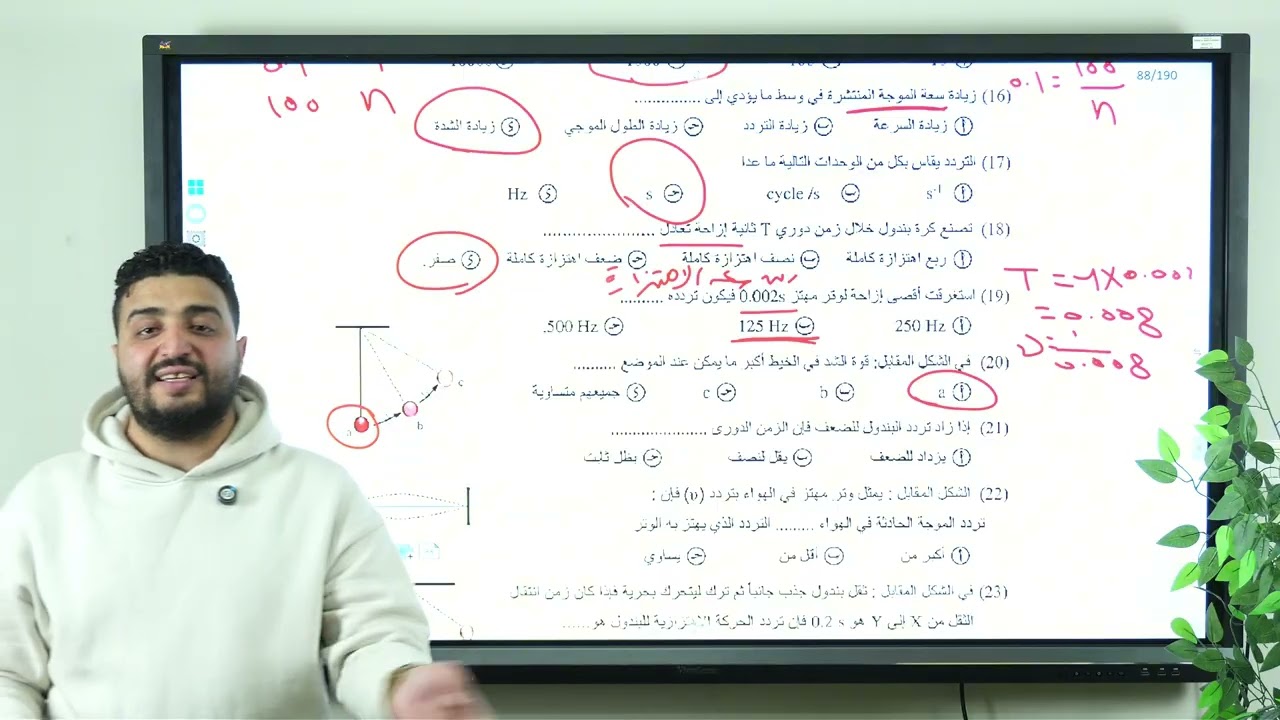 88/190
0.1 = 100 / n
100 n
(16) زيادة سعة الموجة المنتشرة في وسط ما يؤدي إلى ...............
أ زيادة السرعة ب زيادة التردد جـ زيادة الطول الموجي د زيادة الشدة
(17) التردد يقاس بكل من الوحدات التالية ما عدا
أ s⁻¹ ب cycle /s جـ s د Hz
(18) تصنع كرة بندول خلال زمن دوري T ثانية إزاحة تعادل ......................
أ ربع اهتزازة كاملة ب نصف اهتزازة كاملة جـ ضعف اهتزازة كاملة د صفر.
سعة الاهتزازة
(19) استغرقت أقصى إزاحة لوتر مهتز 0.002s فيكون تردده ..........
أ 250 Hz ب 125 Hz جـ 500 Hz.
= 0.008
0.008
(20) في الشكل المقابل: قوة الشد في الخيط أكبر ما يمكن عند الموضع ..........
أ a ب b جـ c د جميعهم متساوية
a b c
(21) إذا زاد تردد البندول للضعف فإن الزمن الدوري ......................
أ يزداد للضعف ب يقل لنصف جـ يظل ثابت
(22) الشكل المقابل : يمثل وتر مهتز في الهواء بتردد (υ) فإن :
تردد الموجة الحادثة في الهواء ......... التردد الذي يهتز به الوتر
أ أكبر من ب أقل من جـ يساوي
(23) في الشكل المقابل : ثقل بندول جذب جانباً ثم ترك ليتحرك بحرية فإذا كان زمن انتقال
الثقل من X إلى Y هو 0.2 s فإن تردد الحركة الاهتزازية للبندول هو......
ViewSonic